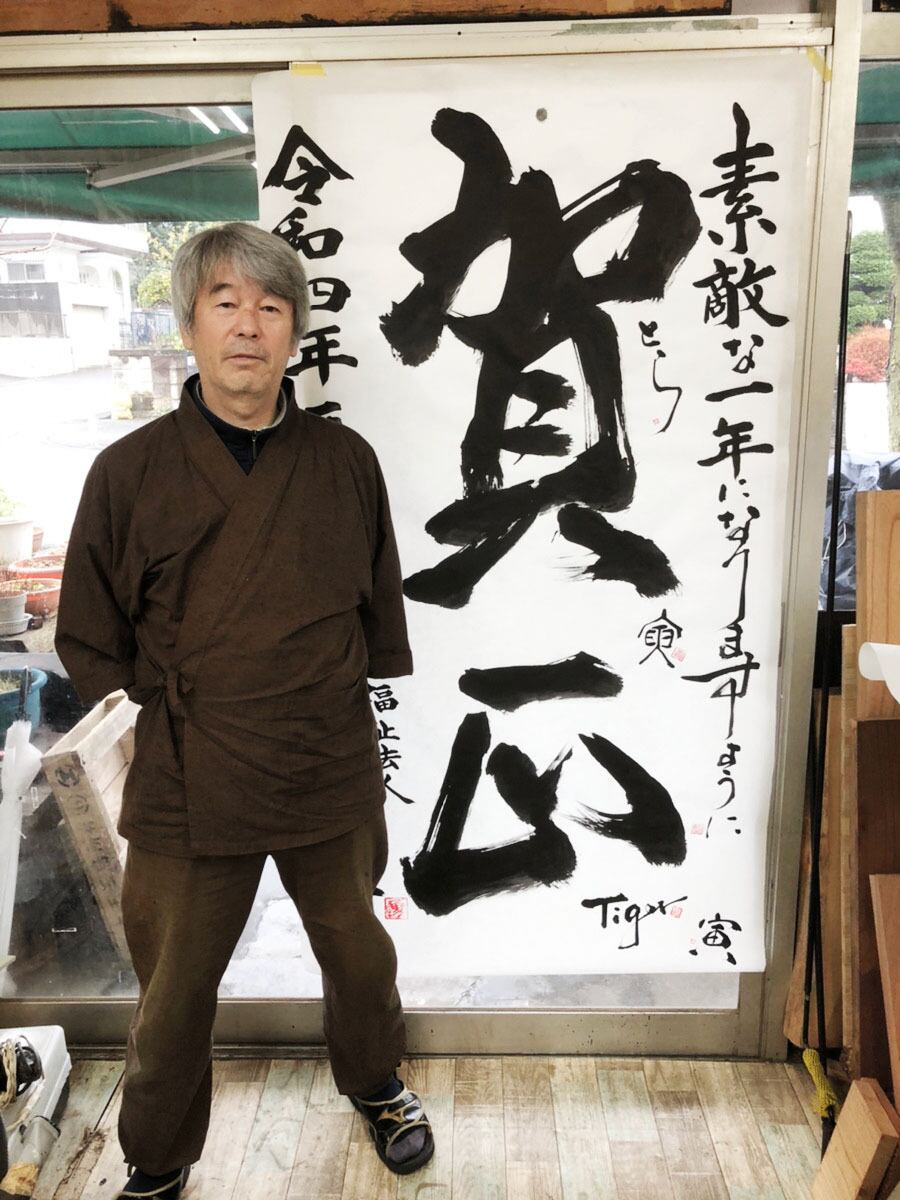 素敵な一年になりますように
寅
賀正
とら
寅
Tiger
令和四年
福祉法人